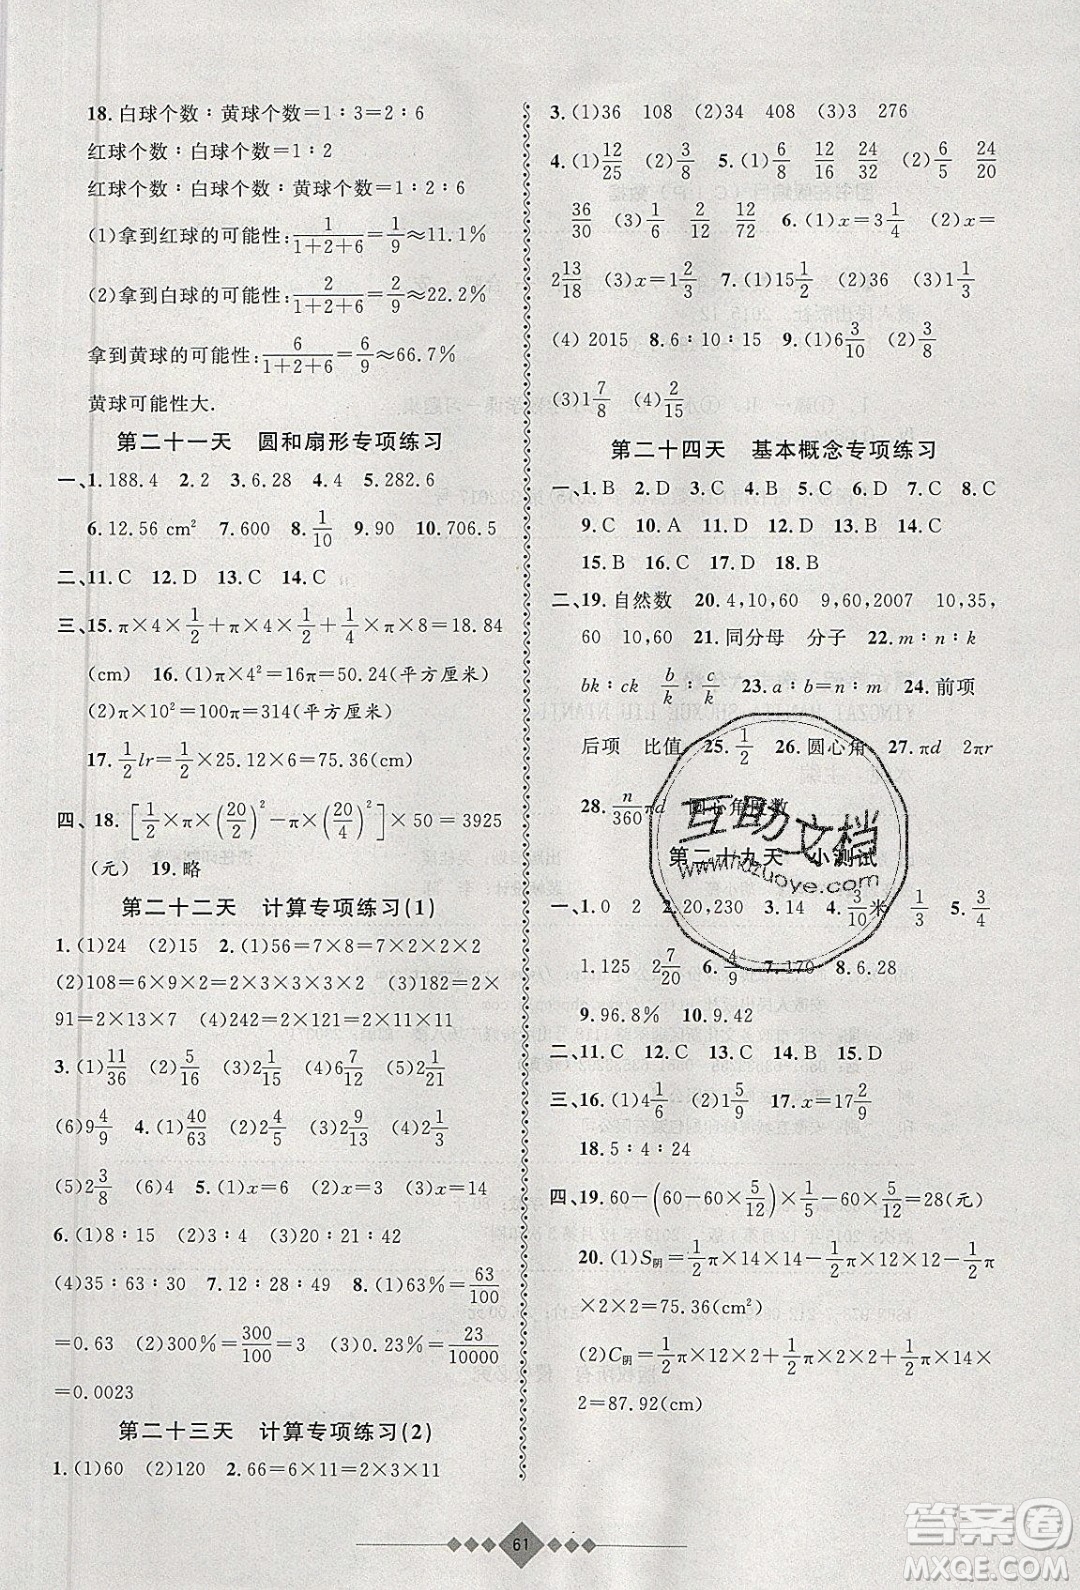 18.白球个数∶黄球个数=1∶3=2∶6
红球个数∶白球个数=1∶2
红球个数∶白球个数∶黄球个数=1∶2∶6
(1)拿到红球的可能性:1/(1+2+6)=1/9≈11.1%
(2)拿到白球的可能性:2/(1+2+6)=2/9≈22.2%
拿到黄球的可能性:6/(1+2+6)=6/9≈66.7%
黄球可能性大.
第二十一天 圆和扇形专项练习
一、1.188.4 2.2 3.6.28 4.4 5.282.6
6.12.56 cm² 7.600 8.1/10 9.90 10.706.5
二、11.C 12.D 13.C 14.C
三、15.π×4×1/2+π×(1/2+1/4)×4×π=18.84
(cm) 16.(1)π×4²=16π=50.24(平方厘米)
(2)π×10²=100π=314(平方厘米)
17.1/2lr=1/2×25.12×6=75.36(平方厘米)
四、18.[1/2×π×(20/2)²-π×(20/4)²]×50=3925
(元) 19.略
第二十二天 计算专项练习(1)
1.(1)24 (2)15 2.(1)56=7×8=7×2×2×2
(2)108=6×9×2=2×3×3×3×2 (3)182=2×
91=2×13×7 (4)242=2×121=2×11×11
3.(1)11/36 (2)1/15 (3)2 2/15 (4)1/20 (5)2 1/24
(6)9 4/9 4.(1)40/63 (2)2 4/5 (3)2/13 (4)2
(5)2 3/8 5.(1)x=6 (2)x=5 (3)x=14
6.(1)8∶15 (2)4∶3 (3)20∶21∶42
(4)35∶63∶30 7.12∶28∶49 8.(1)63%=63/100
=0.63 (2)300%=300/100=3 (3)0.23%=23/10000
=0.0023
第二十三天 计算专项练习(2)
1.(1)60 (2)120 2.66=6×11=2×3×11
3.(1)36 108 (2)24 408 (3)3 276
4.(1)12/25 (2)3/8 5.(1)6/8 12/16 24/32 (2)6/5 24/20
36/30 (3)1/6 2/12 12/72 6.(1)x=3 1/4 (2)x=
2 13/18 (3)x=4 7.(1)1/2 (2)36 (3)1 1/3
(4)2015 8.6∶10∶15 9.(1)6 3/10 (2)3/8
(3)1 7/8 (4)2/15
第二十四天 基本概念专项练习
一、1.B 2.D 3.C 4.C 5.B 6.D 7.C 8.C
9.C 10.A 11.D 12.D 13.B 14.C
15.B 16.C 17.D 18.B
二、19.自然数 20.4,10,60 9,60,2007 10,35,
60 10,60 21.同分母 分子 22.m∶n∶k
bk∶ck b/k∶c/k 23.a∶b=n∶m 24.前项
后项 比值 25.1/2 26.圆心角 27.πd 2πr
28.n/360πd 圆心角度数
第二十九天 小测试
一、1.0 2 2.20,230 3.14 4.3/10米 1/3 5.3/4
1.125 2 7/20 6.4/9 7.170 8.6.28
9.96.8% 10.9.42
二、11.C 12.C 13.B 14.A 15.D
三、16.(1)4 1/6 (2)1 5/9 17.x=17 2/9
18.5∶4∶24
四、19.60-(60-60×5/12)×1/5-60×5/12=28(元)
20.(1)S阴=1/2π×14×14-1/2π×12×12+1/2π
×2×2=75.36(cm²)
(2)C阴=1/2π×12×2+1/2π×2×2+1/2π×14×
2=87.92(cm)
61
互助文档
答案圈
MXQE.COM